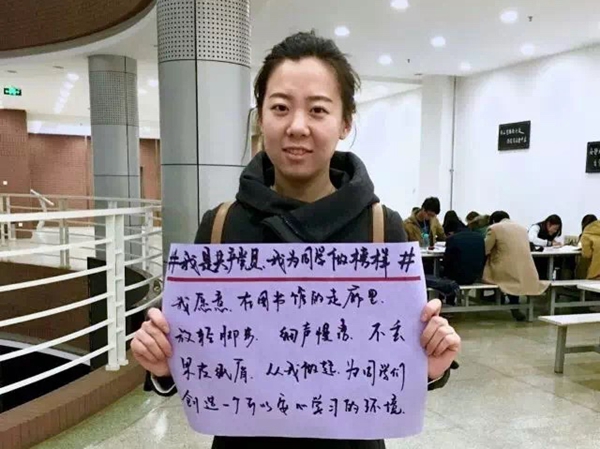 #我是共产党员,我为同学做榜样#
我愿意,在图书馆的走廊里,
放轻脚步、细声慢语、不丢
果皮纸屑,从我做起,为同学们
创造一个可以安心学习的环境.